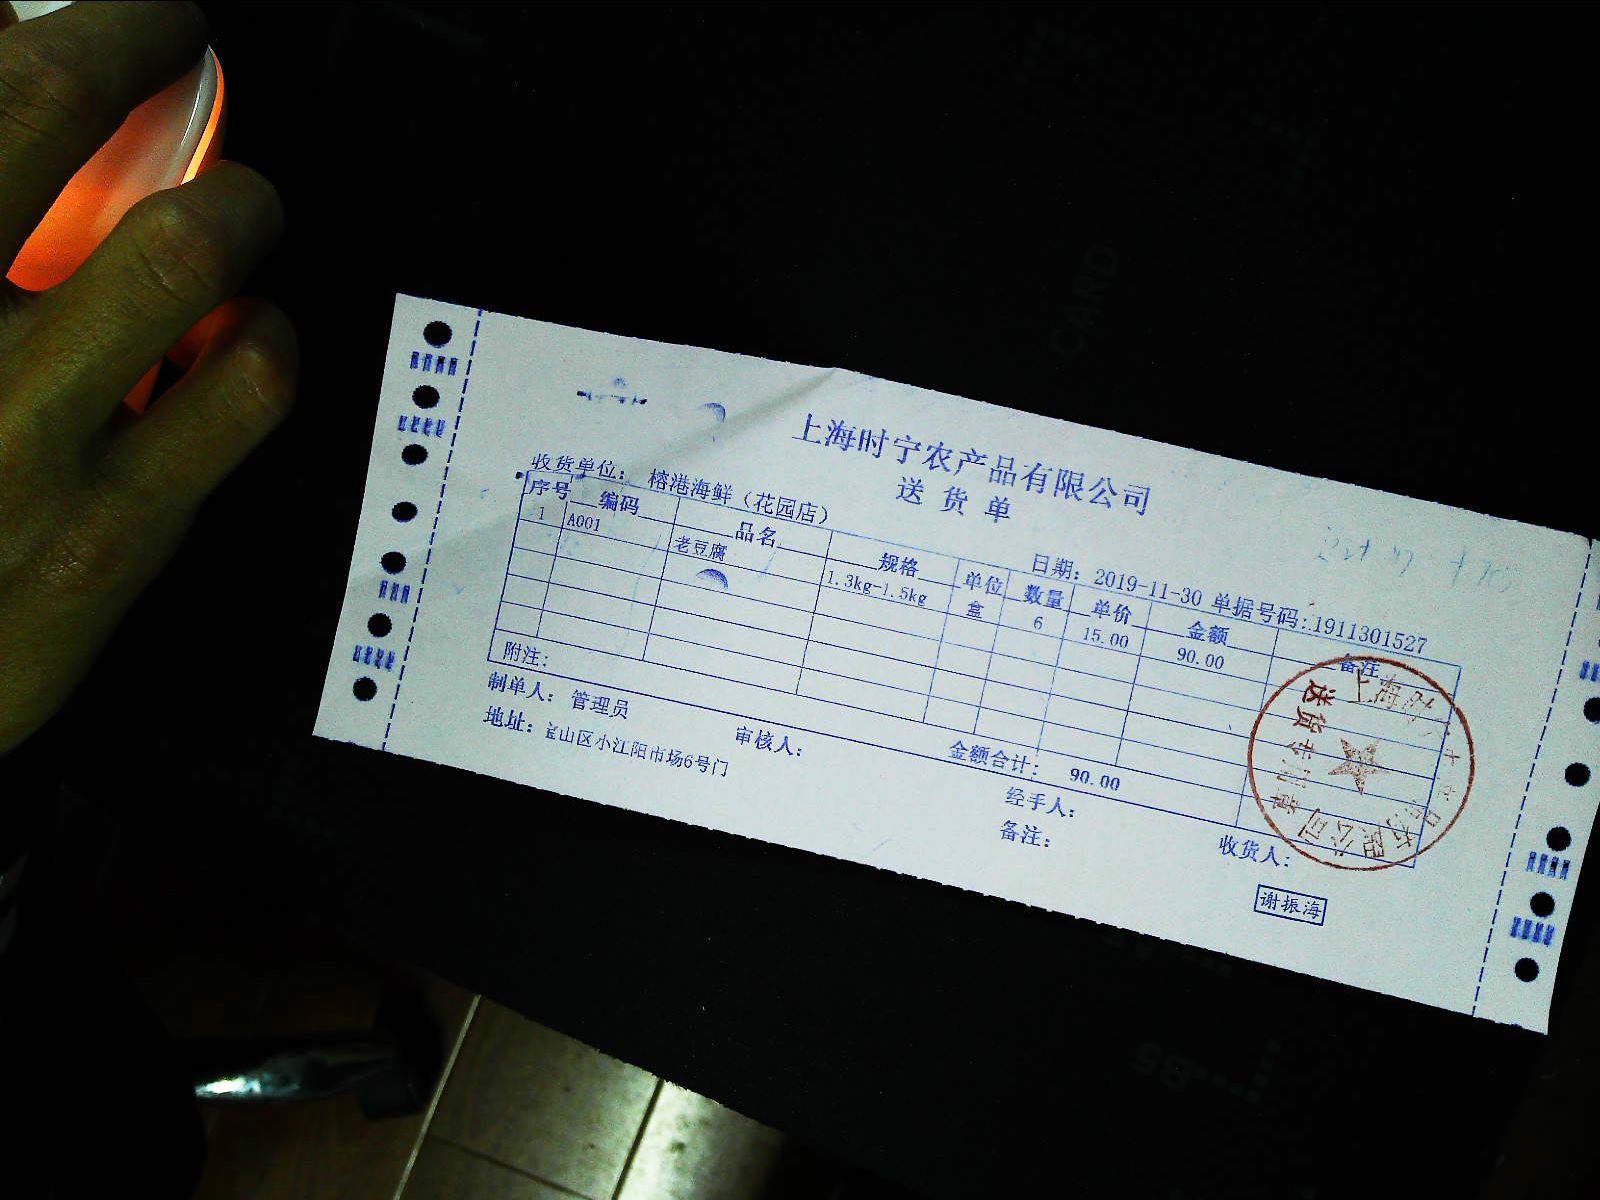 上海时宁农产品有限公司
送货单
收货单位： 榕港海鲜（花园店） 日期：2019-11-30 单据号码：1911301527
序号 编码 品名 规格 单位 数量 单价 金额 备注
1 A001 老豆腐 1.3kg-1.5kg 盒 6 15.00 90.00
附注： 金额合计： 90.00
制单人： 管理员 审核人： 经手人： 收货人：
地址：宝山区小江阳市场6号门 备注：
谢振海
送货专用章
CARD